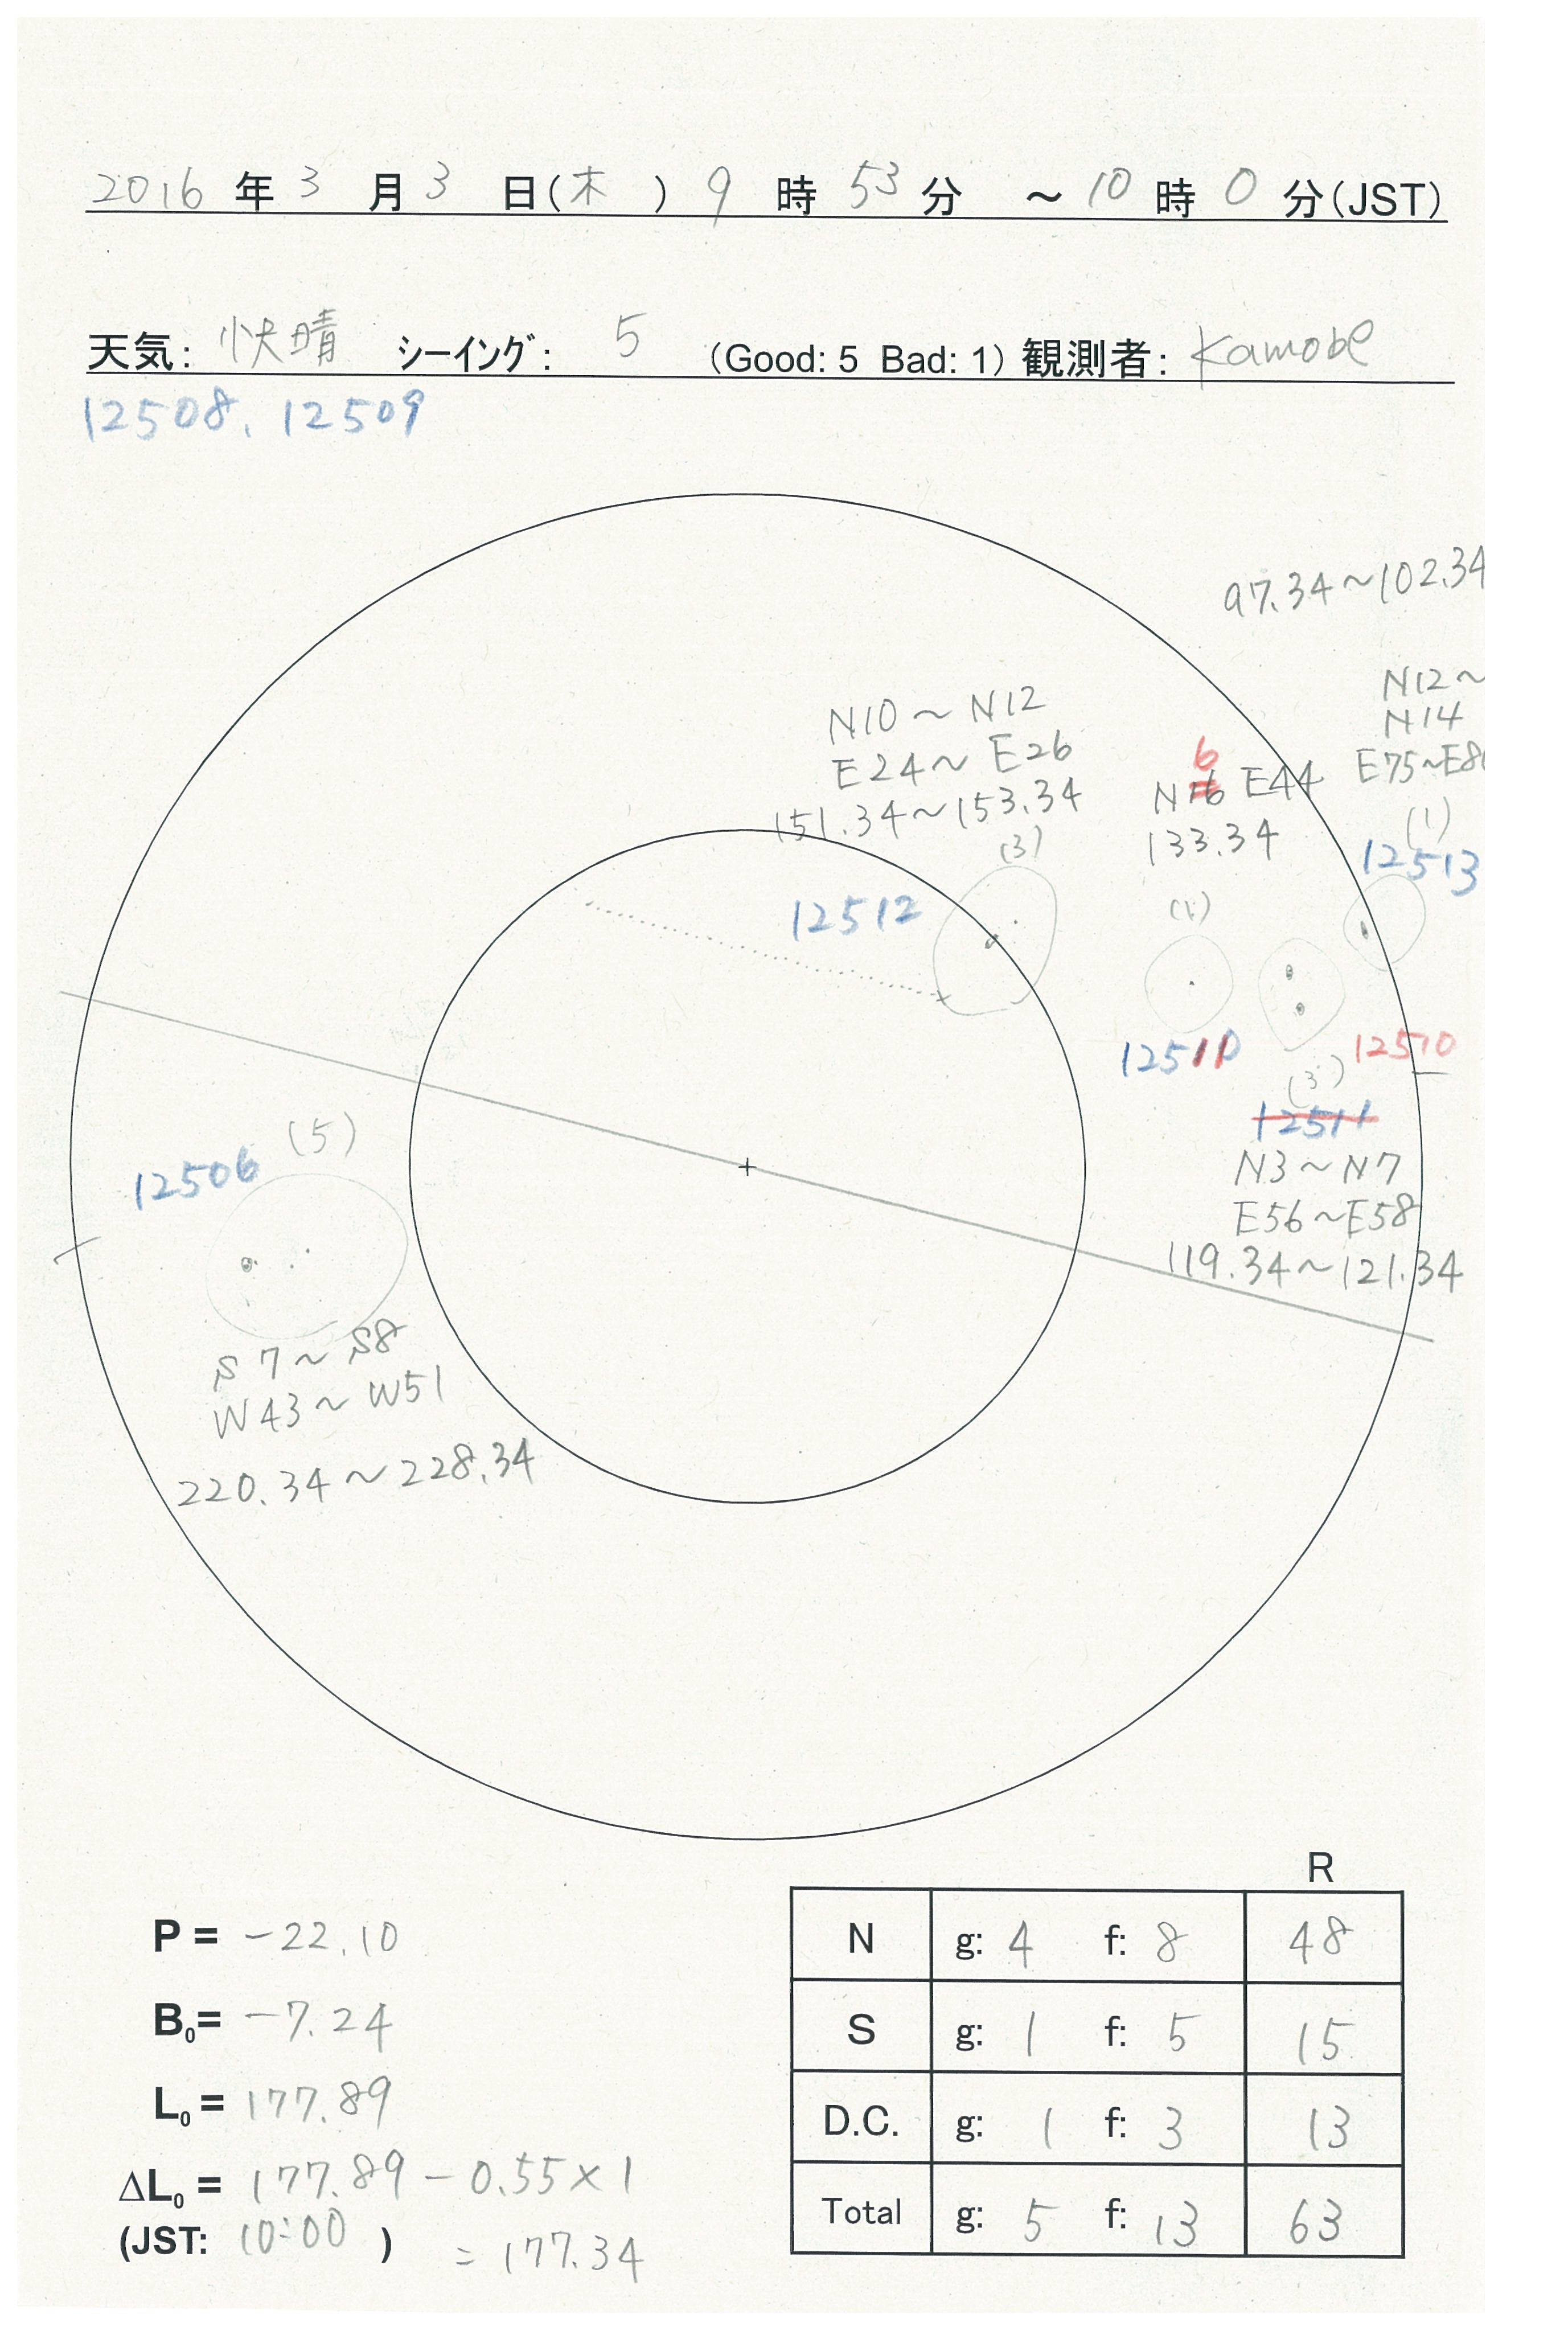 2016 年 3 月 3 日(木) 9 時 53 分 ～ 10 時 0 分(JST)
天気: 快晴 シーイング: 5 (Good: 5 Bad: 1) 観測者: Kamobe
12508, 12509
97.34～102.34
N12～
N14
E75～E8
(1)
12513
N10～N12
E24～E26
151.34～153.34
(3)
12512
6
N16 E44
133.34
(1)
12510
(3)
12511
N3～N7
E56～E58
119.34～121.34
(5)
12506
S7～S8
W43～W51
220.34～228.34
P = -22.10
B0= -7.24
L0 = 177.89
ΔL0 = 177.89 - 0.55×1
(JST: 10:00 ) = 177.34
R
N g: 4 f: 8 48
S g: 1 f: 5 15
D.C. g: 1 f: 3 13
Total g: 5 f: 13 63